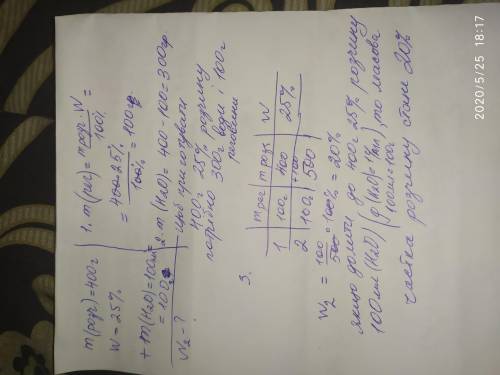 m(розч)=400г
W = 25%
+ m(H2O)=100мл=
=100г
W2 - ?
1. m(реч) = mрозч · W / 100% =
= 400 · 25% / 100% = 100г
2. m(H2O) = 400 - 100 = 300гр
щоб приготувати
400г 25% розчину
потрібно 300г води і 100г
речовини
3.
mреч | mрозч | W
1 | 100г | 400 | 25%
+100
2 | 100г | 500
W2 = 100 / 500 · 100% = 20%
якщо долити до 400г 25% розчину
100мл (H2O) (ρ(H2O)=1г/мл) то масова
100мл=100г
частка розчину стане 20%
2020/5/25 18:17